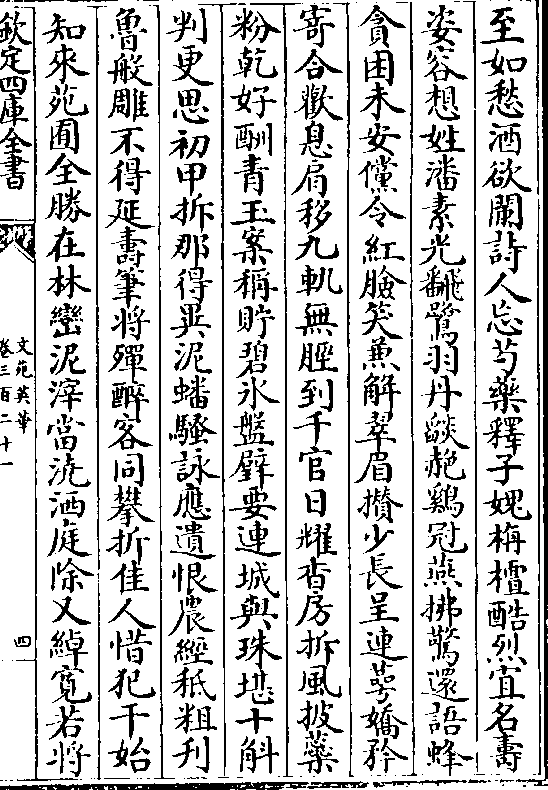 至如愁酒欲闌詩人忘芍藥釋子媿栴檀酷烈宜名壽
姿容想姓潘素光翻鷺羽丹燄赩鷄冠燕拂驚還語蜂
貪困未安儻令紅臉笑兼解翠眉攅少長呈連萼嬌矜
寄合歡息肩移九軌無脛到千官日耀香房拆風披藥
粉乾好酬青玉案稱貯碧氷盤壁要連城與珠堪十斛
判更思初甲拆那得異泥蟠騷詠應遺恨農經秪粗刋
魯般雕不得延壽筆將殫醉客同攀折佳人惜犯干始
知來苑囿全勝在林巒泥滓當澆洒庭除又綽寛若將
欽定四庫全書
文苑英華
卷三百二十一
四